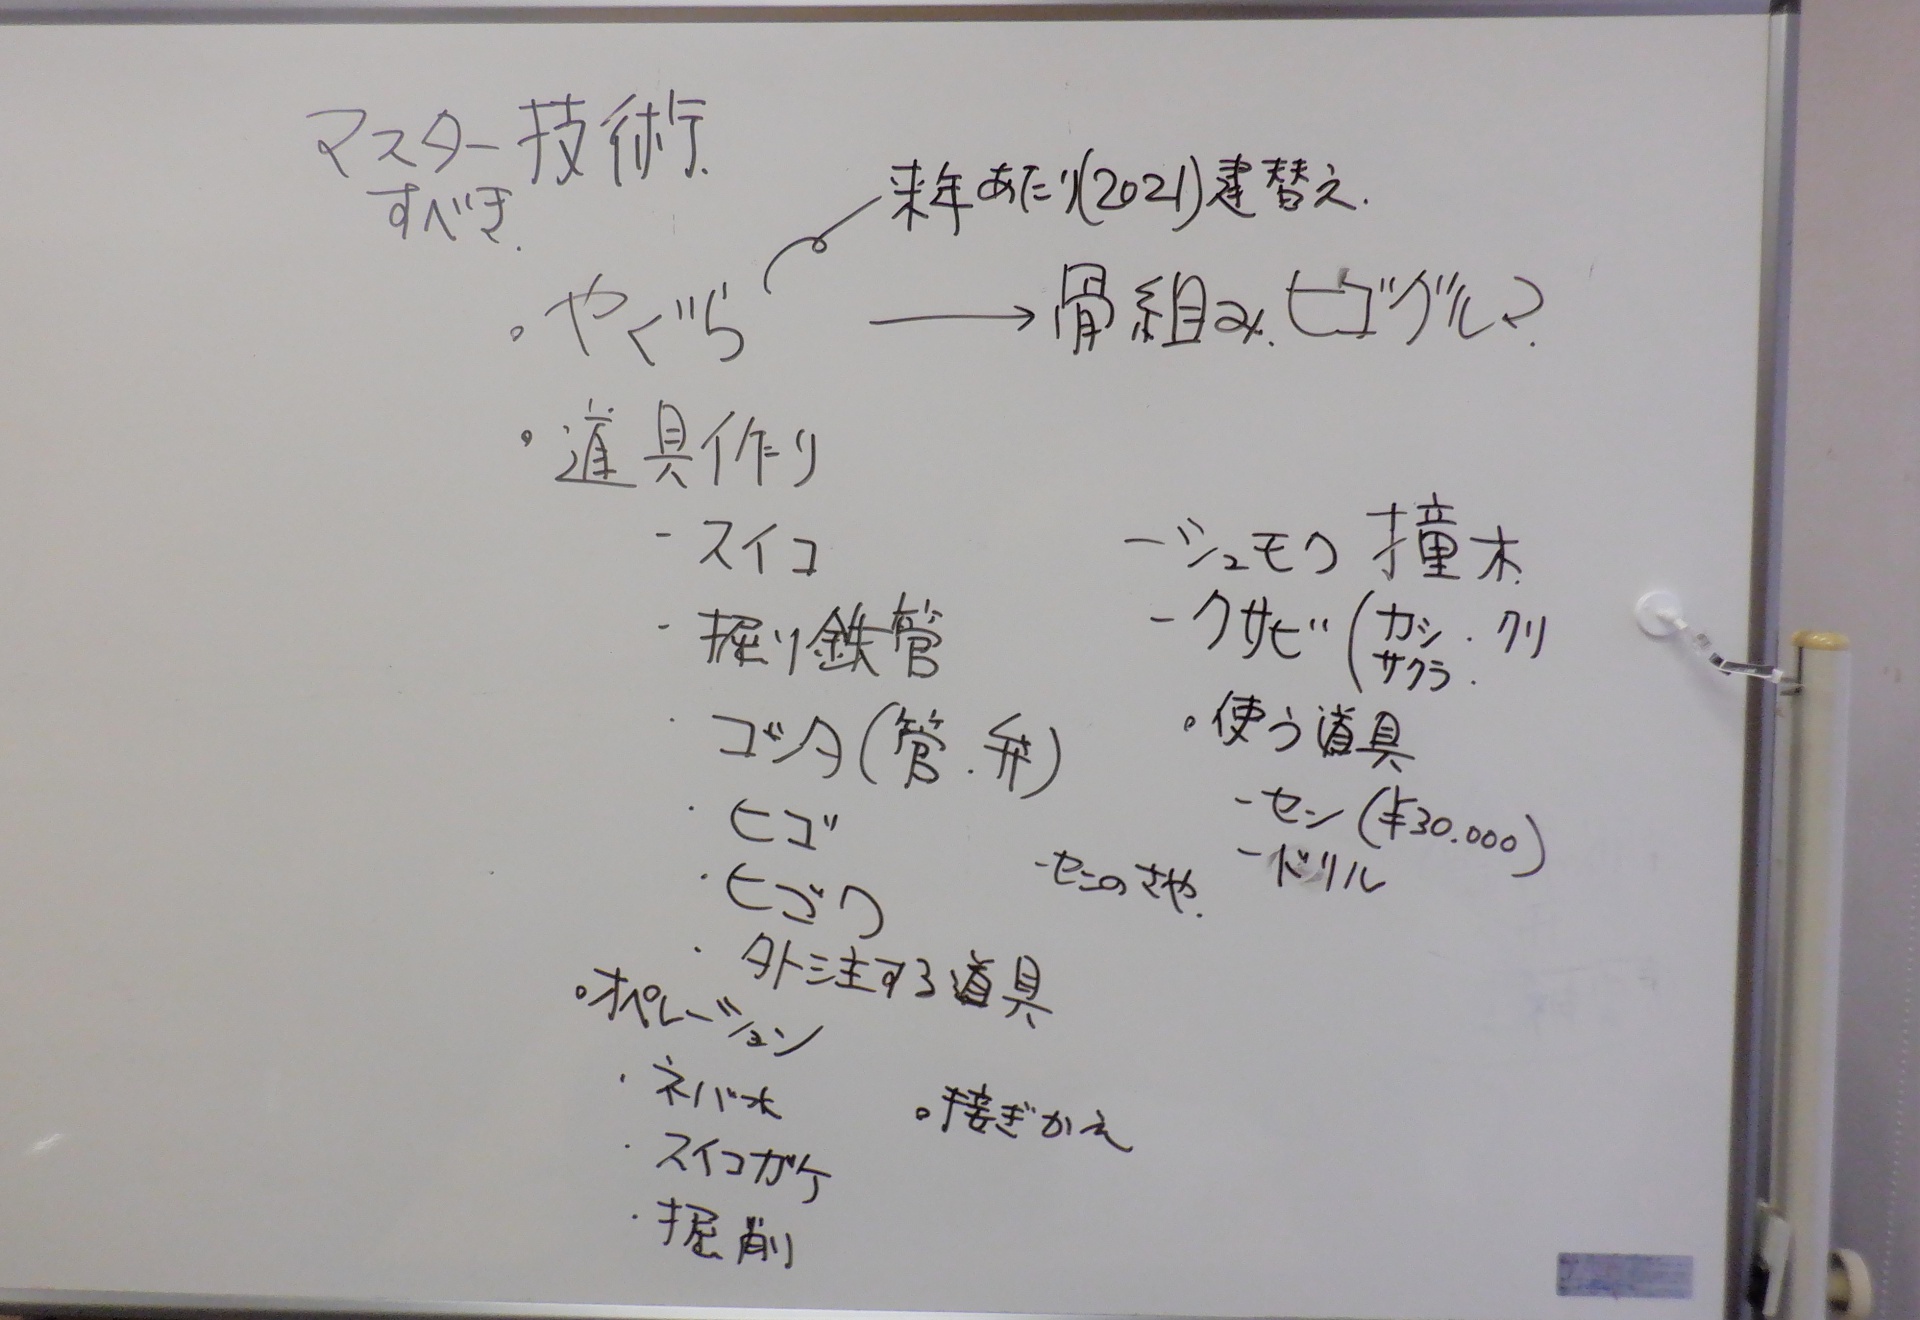 マスター技術
すべき.
来年あたり(2021)建替え.
・やぐら → 骨組み. ヒゴグルマ?
・道具作り
- スイコ
- 掘り鉄管
・コシタ(管.弁)
・ヒゴ
・ヒゴワ
・外注する道具
- シュモク 撞木
- クサビ(カシ.クリ
サクラ.
・使う道具
- セン(¥30.000)
- ドリル
- センのさや.
・オペレーション
・ネバ水
・スイコガケ
・掘削
・接ぎかえ